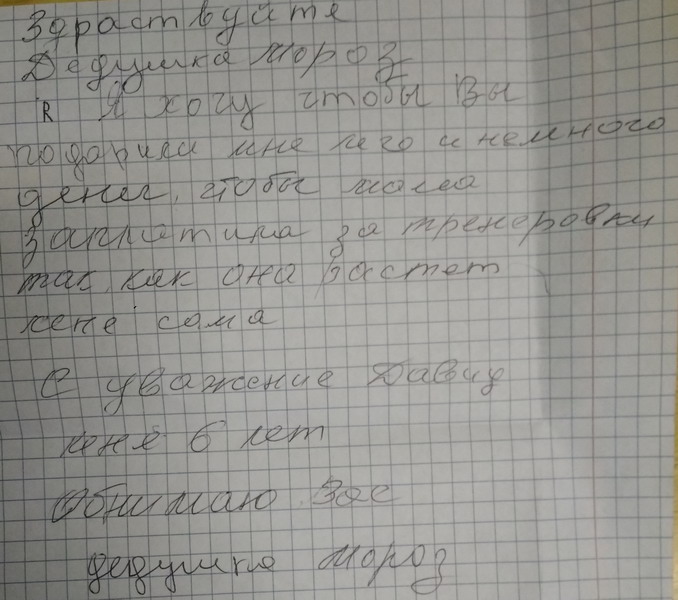 Здраствуйте
Дедушка мороз
Я Я хочу чтобы Вы
подарили мне лего и немного
денег, чтобы мама
заплатила за тренеровки
так как она растет
меня сама
С уважение Давид
меня 6 лет
Обнимаю Вас
дедушка мороз